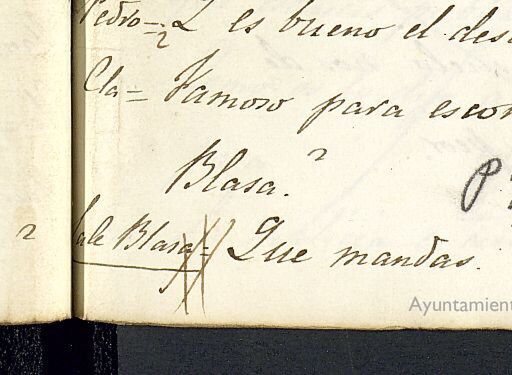 Pedro = Y es bueno el des
Cla = Famoso para escon
Blasa.?
P
2 Sale Blasa = Que mandas.
Ayuntamient